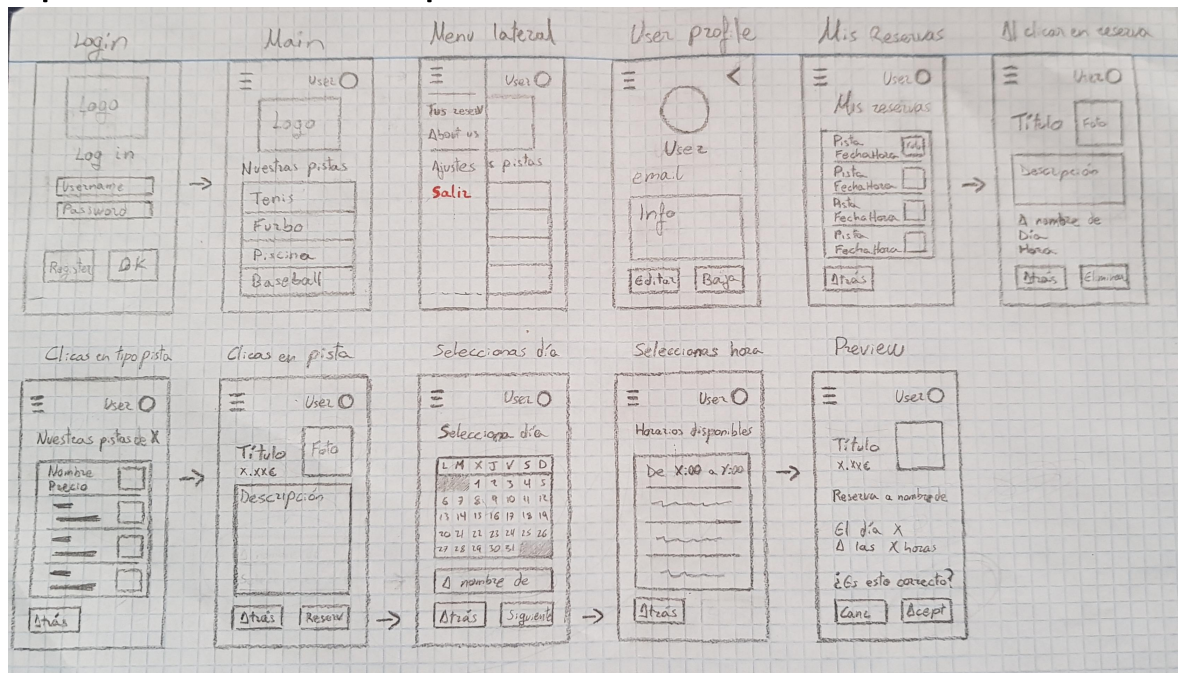 Login
Logo
Log in
Username
Password
Register OK
Main
User
Logo
Nuestras pistas
Tenis
Furbo
Piscina
Baseball
Menu lateral
User
Tus reserv
About us
Ajustes s pistas
Salir
User profile
<
User
email
Info
Editar Baja
Mis Reservas
User
Mis reservas
Pista Foto
Fecha Hora
Pista
Fecha Hora
Pista
Fecha Hora
Pista
Fecha Hora
Atrás
Al clicar en reserva
User
Título Foto
Descripción
A nombre de
Día
Hora
Atrás Eliminar
Clicas en tipo pista
User
Nuestras pistas de X
Nombre
Precio
Atrás
Clicas en pista
User
Título Foto
X.XX€
Descripción
Atrás Reserv
Seleccionas día
User
Selecciona día
L M X J V S D
1 2 3 4 5
6 7 8 9 10 11 12
13 14 15 16 17 18 19
20 21 22 23 24 25 26
27 28 29 30 31
A nombre de
Atrás Siguiente
Seleccionas hora
User
Horarios disponibles
De X:00 a Y:00
Atrás
Preview
User
Título
X.XX€
Reserva a nombre de
El día X
A las X horas
¿Es esto correcto?
Canc Acept